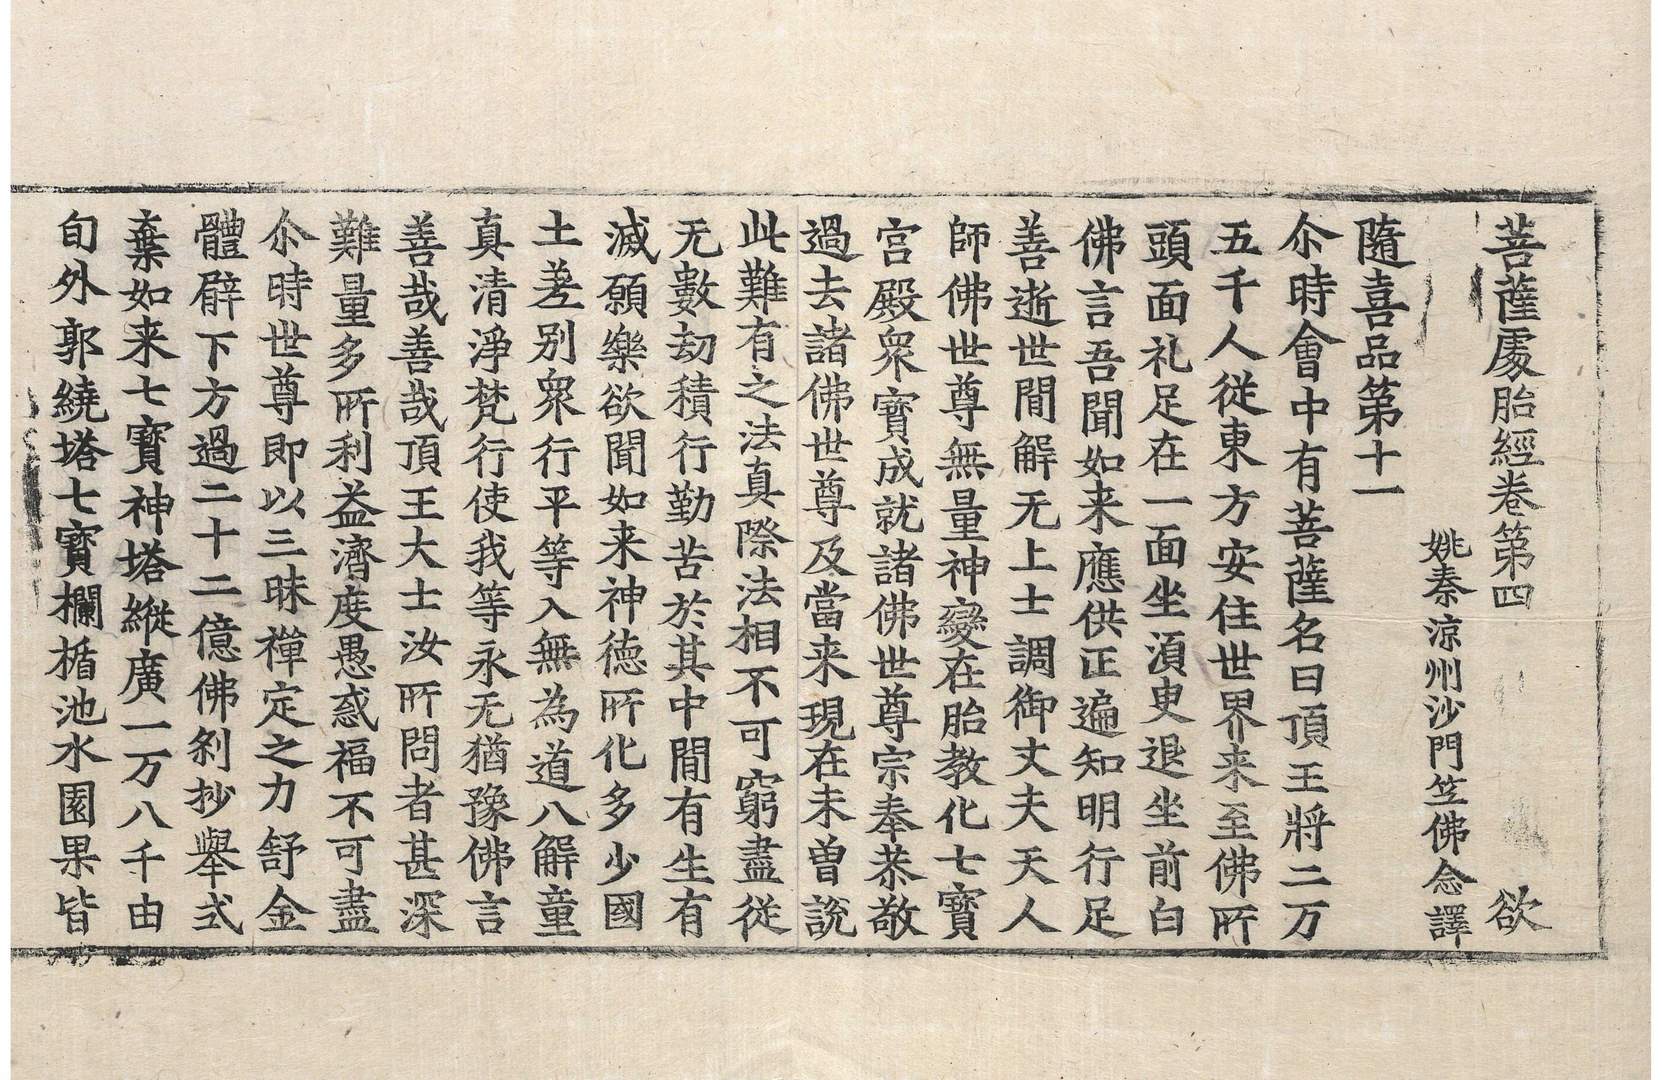 菩薩處胎經卷第四 欲
姚秦涼州沙門笁佛念譯
隨喜品第十一
尒時會中有菩薩名曰頂王將二万
五千人從東方安住世界来至佛所
頭面礼足在一面坐湏㕅退坐前白
佛言吾聞如来應供正遍知明行足
善逝世間解无上士調御丈夫天人
師佛世尊無量神變在胎教化七寶
宮殿衆寶成就諸佛世尊宗奉恭敬
過去諸佛世尊及當来現在未曽說
此難有之法真際法相不可窮盡從
无數劫積行勤苦於其中間有生有
滅願樂欲聞如来神德所化多少國
土差別衆行平等入無為道八解童
真清淨梵行使我等永无猶豫佛言
善哉善哉頂王大士汝所問者甚深
難量多所利益濟度愚惑福不可盡
尒時世尊即以三昧禪定之力舒金
體臂下方過二十二億佛剎抄舉弍
棄如来七寶神塔縱廣一万八千由
旬外郭繞塔七寶欄楯池水園果皆